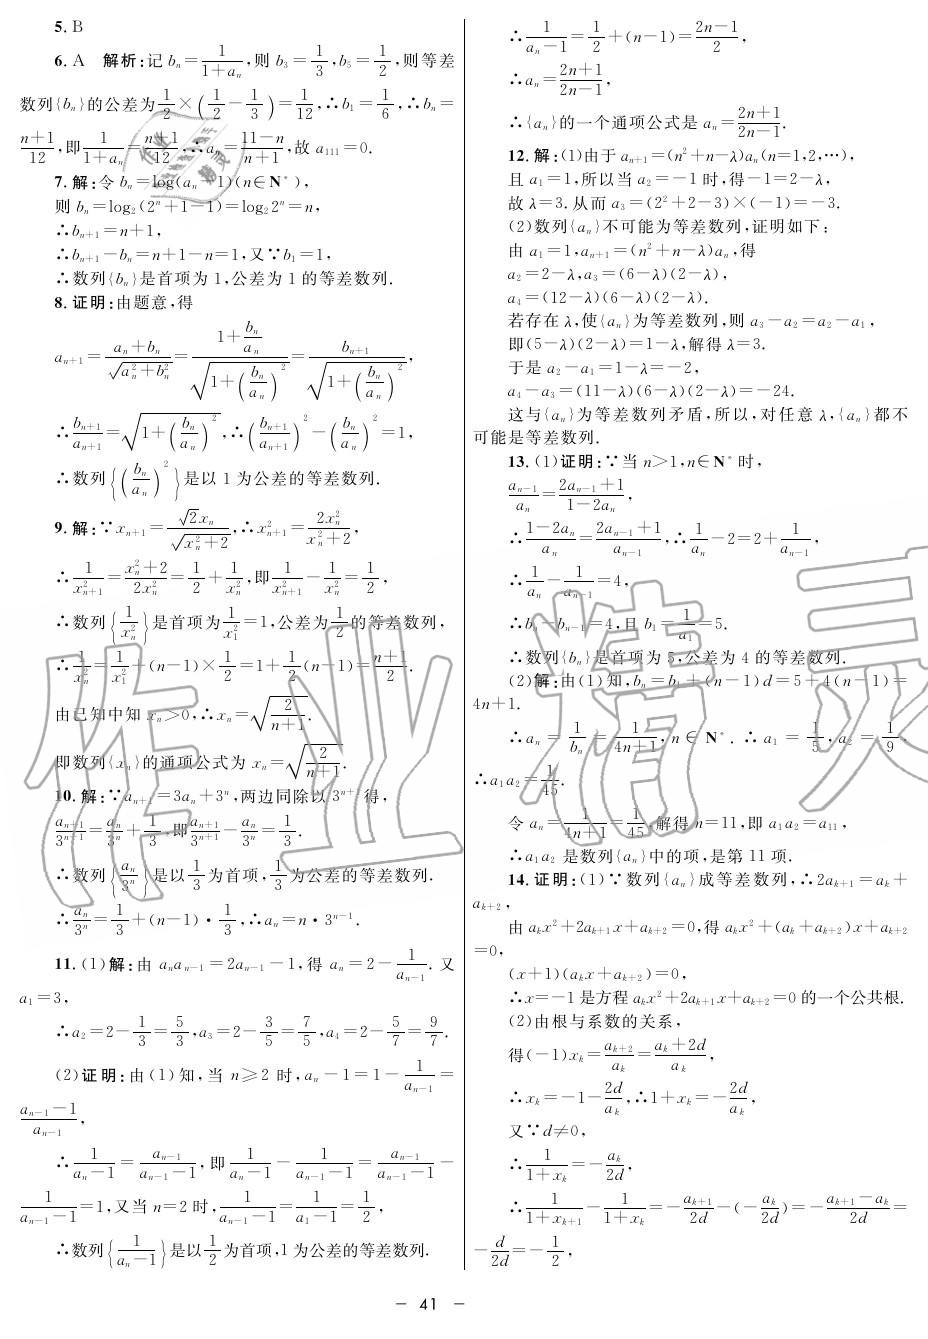 5. B
6. A 解析:记 bₙ=1/(1+aₙ),则 b₃=1/3,b₅=1/2,则等差
数列{bₙ}的公差为1/2×(1/2−1/3)=1/12,∴b₁=1/6,∴bₙ=
(n+1)/12,即1/(1+aₙ)=(n+1)/12,∴aₙ=(11−n)/(n+1),故 a₁₁₁=0.
7. 解:令 bₙ=log(aₙ−1)(n∈N*),
则 bₙ=log₂(2ⁿ+1−1)=log₂2ⁿ=n,
∴bₙ₊₁=n+1,
∴bₙ₊₁−bₙ=n+1−n=1,又∵b₁=1,
∴数列{bₙ}是首项为 1,公差为 1 的等差数列.
8. 证明:由题意,得
aₙ₊₁=(aₙ+bₙ)/√(aₙ²+bₙ²)=(1+bₙ/aₙ)/√(1+(bₙ/aₙ)²)=bₙ₊₁/√(1+(bₙ/aₙ)²),
∴bₙ₊₁/aₙ₊₁=√(1+(bₙ/aₙ)²),∴(bₙ₊₁/aₙ₊₁)²−(bₙ/aₙ)²=1,
∴数列{(bₙ/aₙ)²}是以 1 为公差的等差数列.
9. 解:∵xₙ₊₁=√2xₙ/√(xₙ²+2),∴xₙ₊₁²=2xₙ²/(xₙ²+2),
∴1/xₙ₊₁²=(xₙ²+2)/2xₙ²=1/2+1/xₙ²,即1/xₙ₊₁²−1/xₙ²=1/2,
∴数列{1/xₙ²}是首项为1/x₁²=1,公差为1/2的等差数列,
∴1/xₙ²=1/x₁²+(n−1)×1/2=1+1/2(n−1)=(n+1)/2.
由已知中知 xₙ>0,∴xₙ=√(2/(n+1)).
即数列{xₙ}的通项公式为 xₙ=√(2/(n+1)).
10. 解:∵aₙ₊₁=3aₙ+3ⁿ,两边同除以 3ⁿ⁺¹得,
aₙ₊₁/3ⁿ⁺¹=aₙ/3ⁿ+1/3,即aₙ₊₁/3ⁿ⁺¹−aₙ/3ⁿ=1/3.
∴数列{aₙ/3ⁿ}是以1/3为首项,1/3为公差的等差数列.
∴aₙ/3ⁿ=1/3+(n−1)·1/3,∴aₙ=n·3ⁿ⁻¹.
11. (1)解:由 aₙaₙ₋₁=2aₙ₋₁−1,得 aₙ=2−1/aₙ₋₁.又
a₁=3,
∴a₂=2−1/3=5/3,a₃=2−3/5=7/5,a₄=2−5/7=9/7.
(2)证明:由(1)知,当 n≥2 时,aₙ−1=1−1/aₙ₋₁=
(aₙ₋₁−1)/aₙ₋₁,
∴1/(aₙ−1)=aₙ₋₁/(aₙ₋₁−1),即1/(aₙ−1)−1/(aₙ₋₁−1)=aₙ₋₁/(aₙ₋₁−1)−
1/(aₙ₋₁−1)=1,又当 n=2 时,1/(aₙ₋₁−1)=1/(a₁−1)=1/2,
∴数列{1/(aₙ−1)}是以1/2为首项,1为公差的等差数列.
∴1/(aₙ−1)=1/2+(n−1)=(2n−1)/2,
∴aₙ=(2n+1)/(2n−1),
∴{aₙ}的一个通项公式是 aₙ=(2n+1)/(2n−1).
12. 解:(1)由于 aₙ₊₁=(n²+n−λ)aₙ(n=1,2,…),
且 a₁=1,所以当 a₂=−1 时,得−1=2−λ,
故 λ=3.从而 a₃=(2²+2−3)×(−1)=−3.
(2)数列{aₙ}不可能为等差数列,证明如下:
由 a₁=1,aₙ₊₁=(n²+n−λ)aₙ,得
a₂=2−λ,a₃=(6−λ)(2−λ),
a₄=(12−λ)(6−λ)(2−λ).
若存在 λ,使{aₙ}为等差数列,则 a₃−a₂=a₂−a₁,
即(5−λ)(2−λ)=1−λ,解得 λ=3.
于是 a₂−a₁=1−λ=−2,
a₄−a₃=(11−λ)(6−λ)(2−λ)=−24.
这与{aₙ}为等差数列矛盾,所以,对任意 λ,{aₙ}都不
可能是等差数列.
13. (1)证明:∵当 n>1,n∈N*时,
aₙ₋₁/aₙ=(2aₙ₋₁+1)/(1−2aₙ),
∴(1−2aₙ)/aₙ=(2aₙ₋₁+1)/aₙ₋₁,∴1/aₙ−2=2+1/aₙ₋₁,
∴1/aₙ−1/aₙ₋₁=4,
∴bₙ−bₙ₋₁=4,且 b₁=1/a₁=5.
∴数列{bₙ}是首项为 5,公差为 4 的等差数列.
(2)解:由(1)知,bₙ=b₁+(n−1)d=5+4(n−1)=
4n+1.
∴aₙ=1/bₙ=1/(4n+1),n∈N*.∴a₁=1/5,a₂=1/9,
∴a₁a₂=1/45.
令 aₙ=1/(4n+1)=1/45,解得 n=11,即 a₁a₂=a₁₁,
∴a₁a₂ 是数列{aₙ}中的项,是第 11 项.
14. 证明:(1)∵数列{aₙ}成等差数列,∴2aₖ₊₁=aₖ+
aₖ₊₂,
由 aₖx²+2aₖ₊₁x+aₖ₊₂=0,得 aₖx²+(aₖ+aₖ₊₂)x+aₖ₊₂
=0,
(x+1)(aₖx+aₖ₊₂)=0,
∴x=−1 是方程 aₖx²+2aₖ₊₁x+aₖ₊₂=0 的一个公共根.
(2)由根与系数的关系,
得(−1)xₖ=aₖ₊₂/aₖ=(aₖ+2d)/aₖ,
∴xₖ=−1−2d/aₖ,∴1+xₖ=−2d/aₖ,
又∵d≠0,
∴1/(1+xₖ)=−aₖ/2d,
∴1/(1+xₖ₊₁)−1/(1+xₖ)=−aₖ₊₁/2d−(−aₖ/2d)=−(aₖ₊₁−aₖ)/2d=
−d/2d=−1/2,
− 41 −
作业精灵
作业精灵